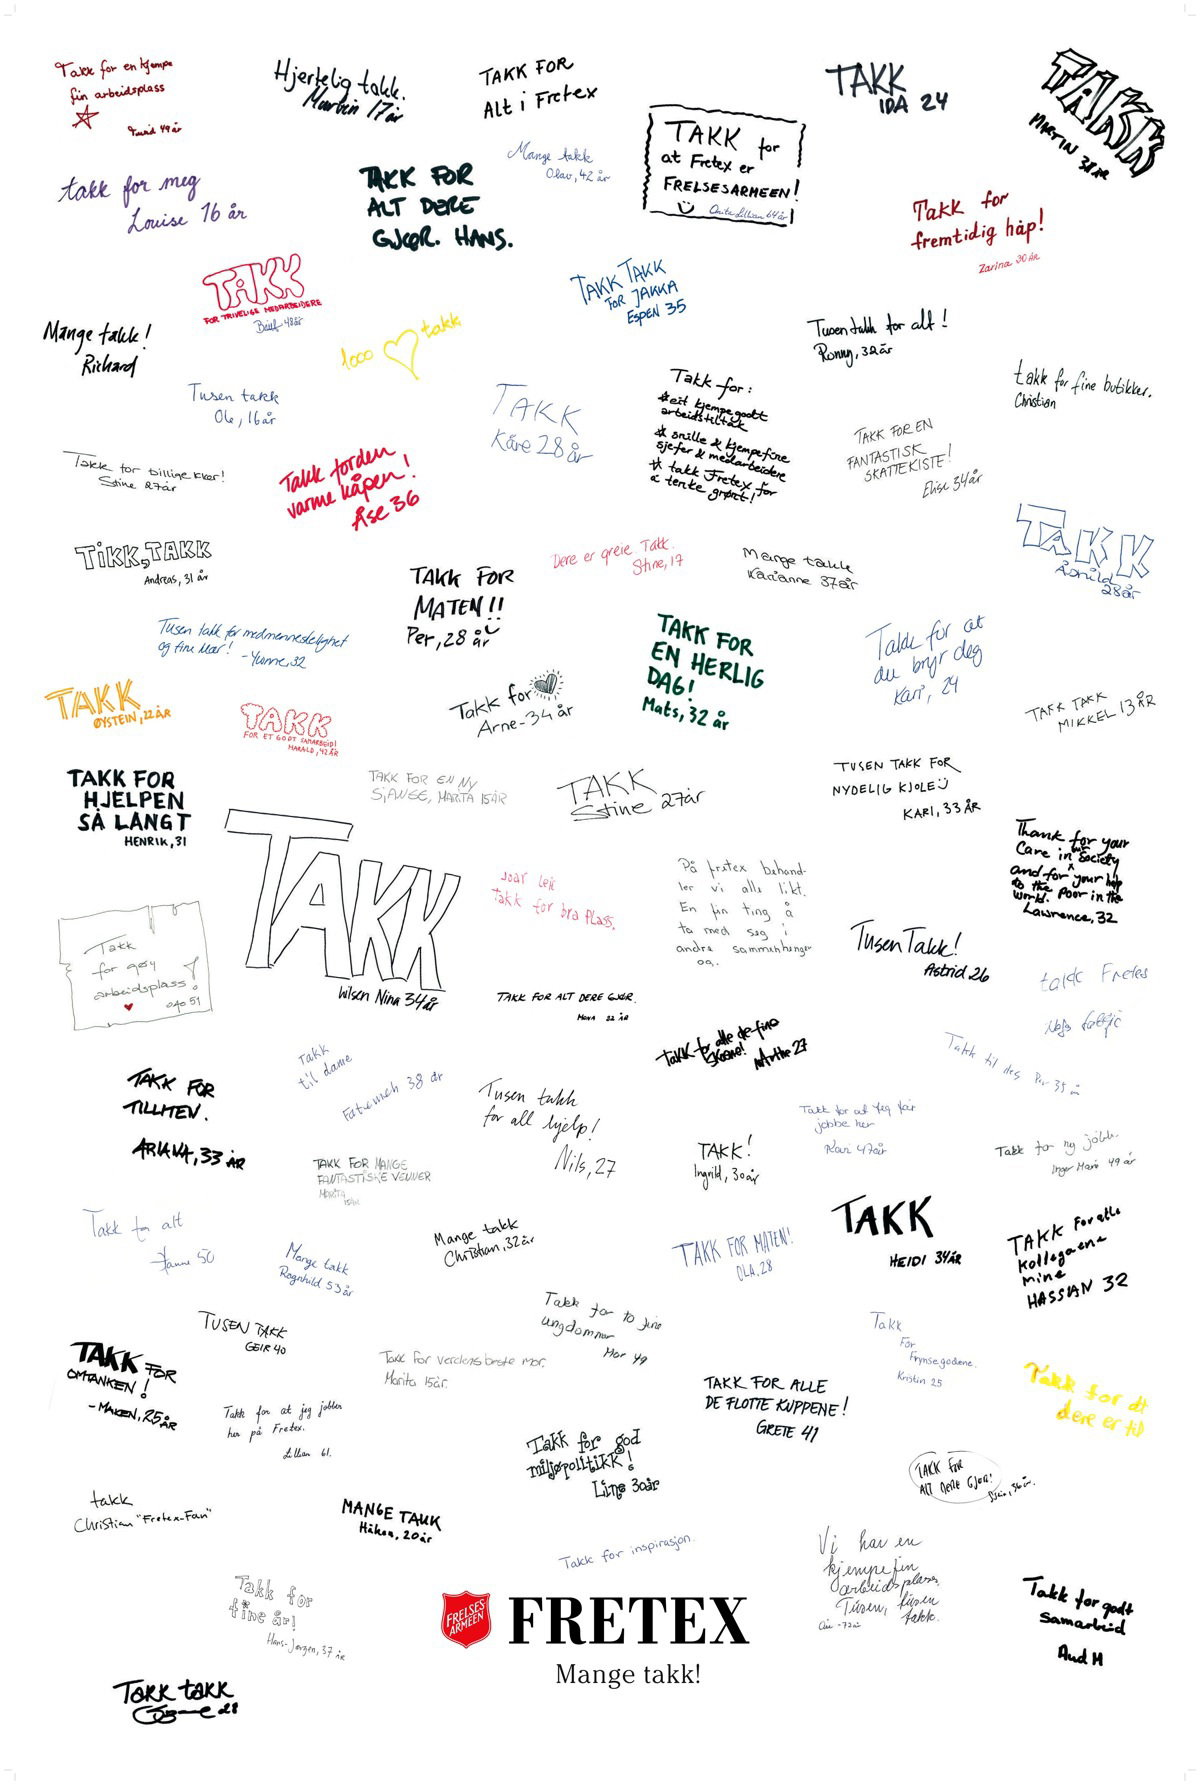 Takk for en kjempe
fin arbeidsplass
Turid 49 år
Hjertelig takk.
Martin 17 år
TAKK FOR
Alt i Fretex
TAKK
IDA 24
TAKK
MARTIN 38 ÅR
takk for meg
Louise 16 år
TAKK FOR
ALT DERE
GJØR. HANS.
Mange takk
Olav, 42 år
TAKK for
at Fretex er
FRELSESARMEEN!
Anita Lillian 64 år
Takk for
fremtidig håp!
Zarina 30 ÅR
TAKK
FOR TRIVELIGE MEDARBEIDERE
48 år
TAKK TAKK
FOR JAKKA
ESPEN 35
Mange takk!
Richard
1000 takk
Tusen takk for alt!
Ronny, 32 år
Tusen takk
Ole, 16 år
TAKK
Kåre 28 år
Takk for:
* eit kjempegodt
arbeidstiltak
* snille & kjempefine
sjefer & medarbeidere
* takk Fretex for
å tenke grønt!
takk for fine butikker.
Christian
TAKK FOR EN
FANTASTISK
SKATTEKISTE!
Elise 34 år
Takk for billige klær!
Stine 27 år
Takk for den
varme kåpen!
Åse 36
TIKK, TAKK
Andreas, 31 år
TAKK FOR
MATEN!!
Per, 28 år
Dere er greie Takk.
Stine, 17
Mange takk
Karianne 37 år
TAKK
Åshild
28 år
Tusen takk for medmenneskelighet
og fine klær! - Yvonne, 32
TAKK FOR
EN HERLIG
DAG!
Mats, 32 år
Takk for at
du bryr deg
Kari, 24
TAKK
ØYSTEIN, 22 ÅR
TAKK
FOR ET GODT SAMARBEID!
HARALD, 42 ÅR
Takk for
Arne - 34 år
TAKK TAKK
MIKKEL 13 ÅR
TAKK FOR
HJELPEN
SÅ LANGT
HENRIK, 31
TAKK FOR EN NY
SJANSE, MARITA 15 ÅR
TAKK
Stine 27 år
TUSEN TAKK FOR
NYDELIG KJOLE
KARI, 33 ÅR
TAKK
Wilsen Nina 34 år
takk for bra plass.
På fretex behand-
ler vi alle likt.
En fin ting å
ta med seg i
andre sammenhenger
og.
Thank for your
Care in our Society
and for your help
to the poor in the
world.
Lawrence, 32
Takk
for gøy
arbeidsplass!
51
Tusen Takk!
Astrid 26
takk Fretex
TAKK FOR ALT DERE GJØR.
MONA 32 ÅR
Takk for alle de fine
skoene!
Marthe 27
Takk
til dame
38 år
Takk til des Per 35 år
TAKK FOR
TILLITEN.
ARIANA, 33 ÅR
Tusen takk
for all hjelp!
Nils, 27
Takk for at jeg får
jobbe her
Kari 47 år
TAKK!
Ingrid, 30 år
Takk for ny jobb.
Inger Marie 49 år
TAKK FOR MANGE
FANTASTISKE VENNER
MARITA
15 ÅR
Takk for alt
Hanne 50
Mange takk
Ragnhild 53 år
Mange takk
Christian, 32 år
TAKK FOR MATEN!
OLA, 28
TAKK
HEIDI 34 ÅR
TAKK for alle
kollegaene
mine
HASSIAN 32
TUSEN TAKK
GEIR 40
Takk for to fine
ungdommer
Mor 49
Takk
For
Frynsegodene.
Kristin 25
TAKK FOR
OMTANKEN!
- MAKEN, 25 ÅR
Takk for verdens beste mor.
Marita 15 år.
TAKK FOR ALLE
DE FLOTTE KUPPENE!
GRETE 41
Takk for at
dere er til
Takk for at jeg jobber
her på Fretex.
Lillian 61.
Takk for god
miljøpolitikk!
Line 30 år
TAKK FOR
ALT DERE GJØR!
Stein, 36 år.
takk
Christian "Fretex-Fan"
MANGE TAKK
Håkon, 20 år
Takk for inspirasjon.
Vi har en
kjempefin
arbeidsplass.
Tusen, tusen
takk.
Takk for
fine år!
Hans-Jørgen, 37 år
FRELSES
ARMEEN
FRETEX
Mange takk!
Takk for godt
Samarbeid
Aud M
Takk takk
28